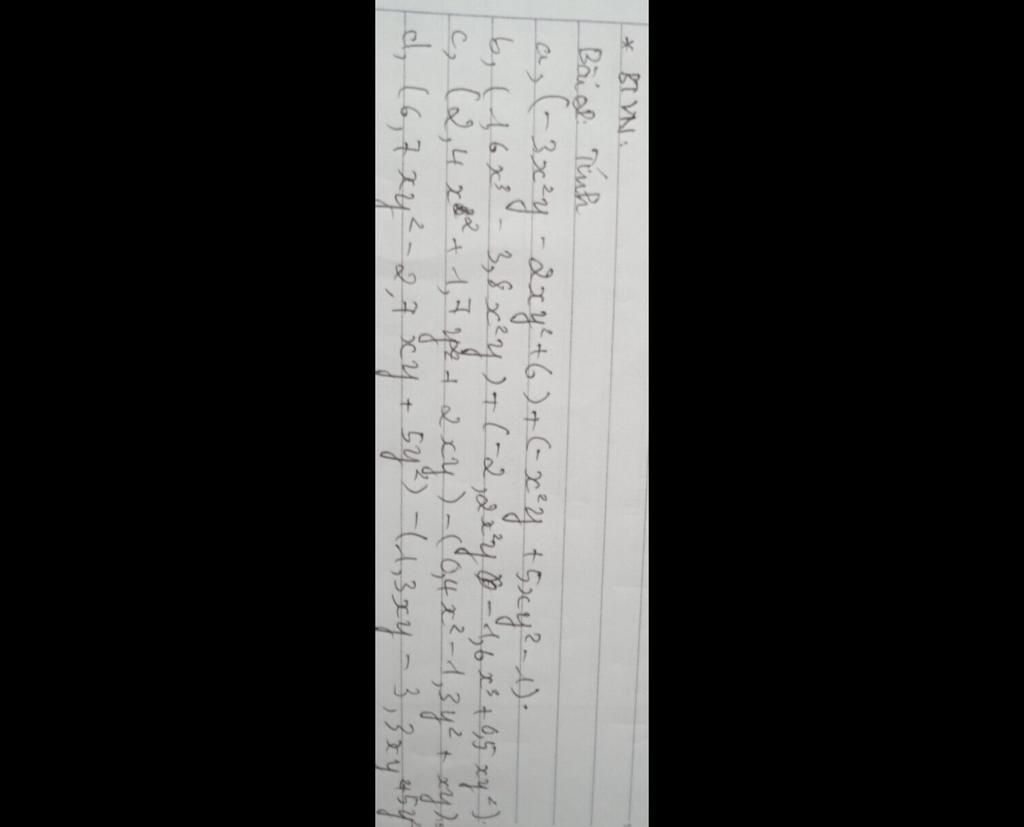 * BTVN:
Bài 2: Tính
a, (-3x²y - 2xy² + 6) + (-x²y + 5xy² - 1).
b, (1,6x³ - 3,8x²y) + (-2,2x²y - 1,6x³ + 0,5xy²).
c, (2,4x² + 1,7y² + 2xy) - (0,4x² - 1,3y² + xy).
d, (6,7xy² - 2,7xy + 5y²) - (1,3xy - 3,3xy